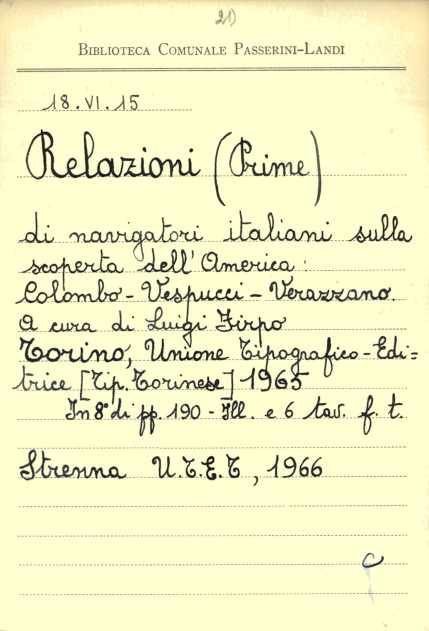 21)
BIBLIOTECA COMUNALE PASSERINI-LANDI
18.VI.15
Relazioni (Prime)
di navigatori italiani sulla
scoperta dell'America:
Colombo - Vespucci - Verazzano.
A cura di Luigi Firpo
Torino, Unione Tipografico-Edi=
trice [Tip. Torinese] 1965
In 8° di pp. 190 - Ill. e 6 tav. f. t.
Strenna U.T.E.T, 1966
C